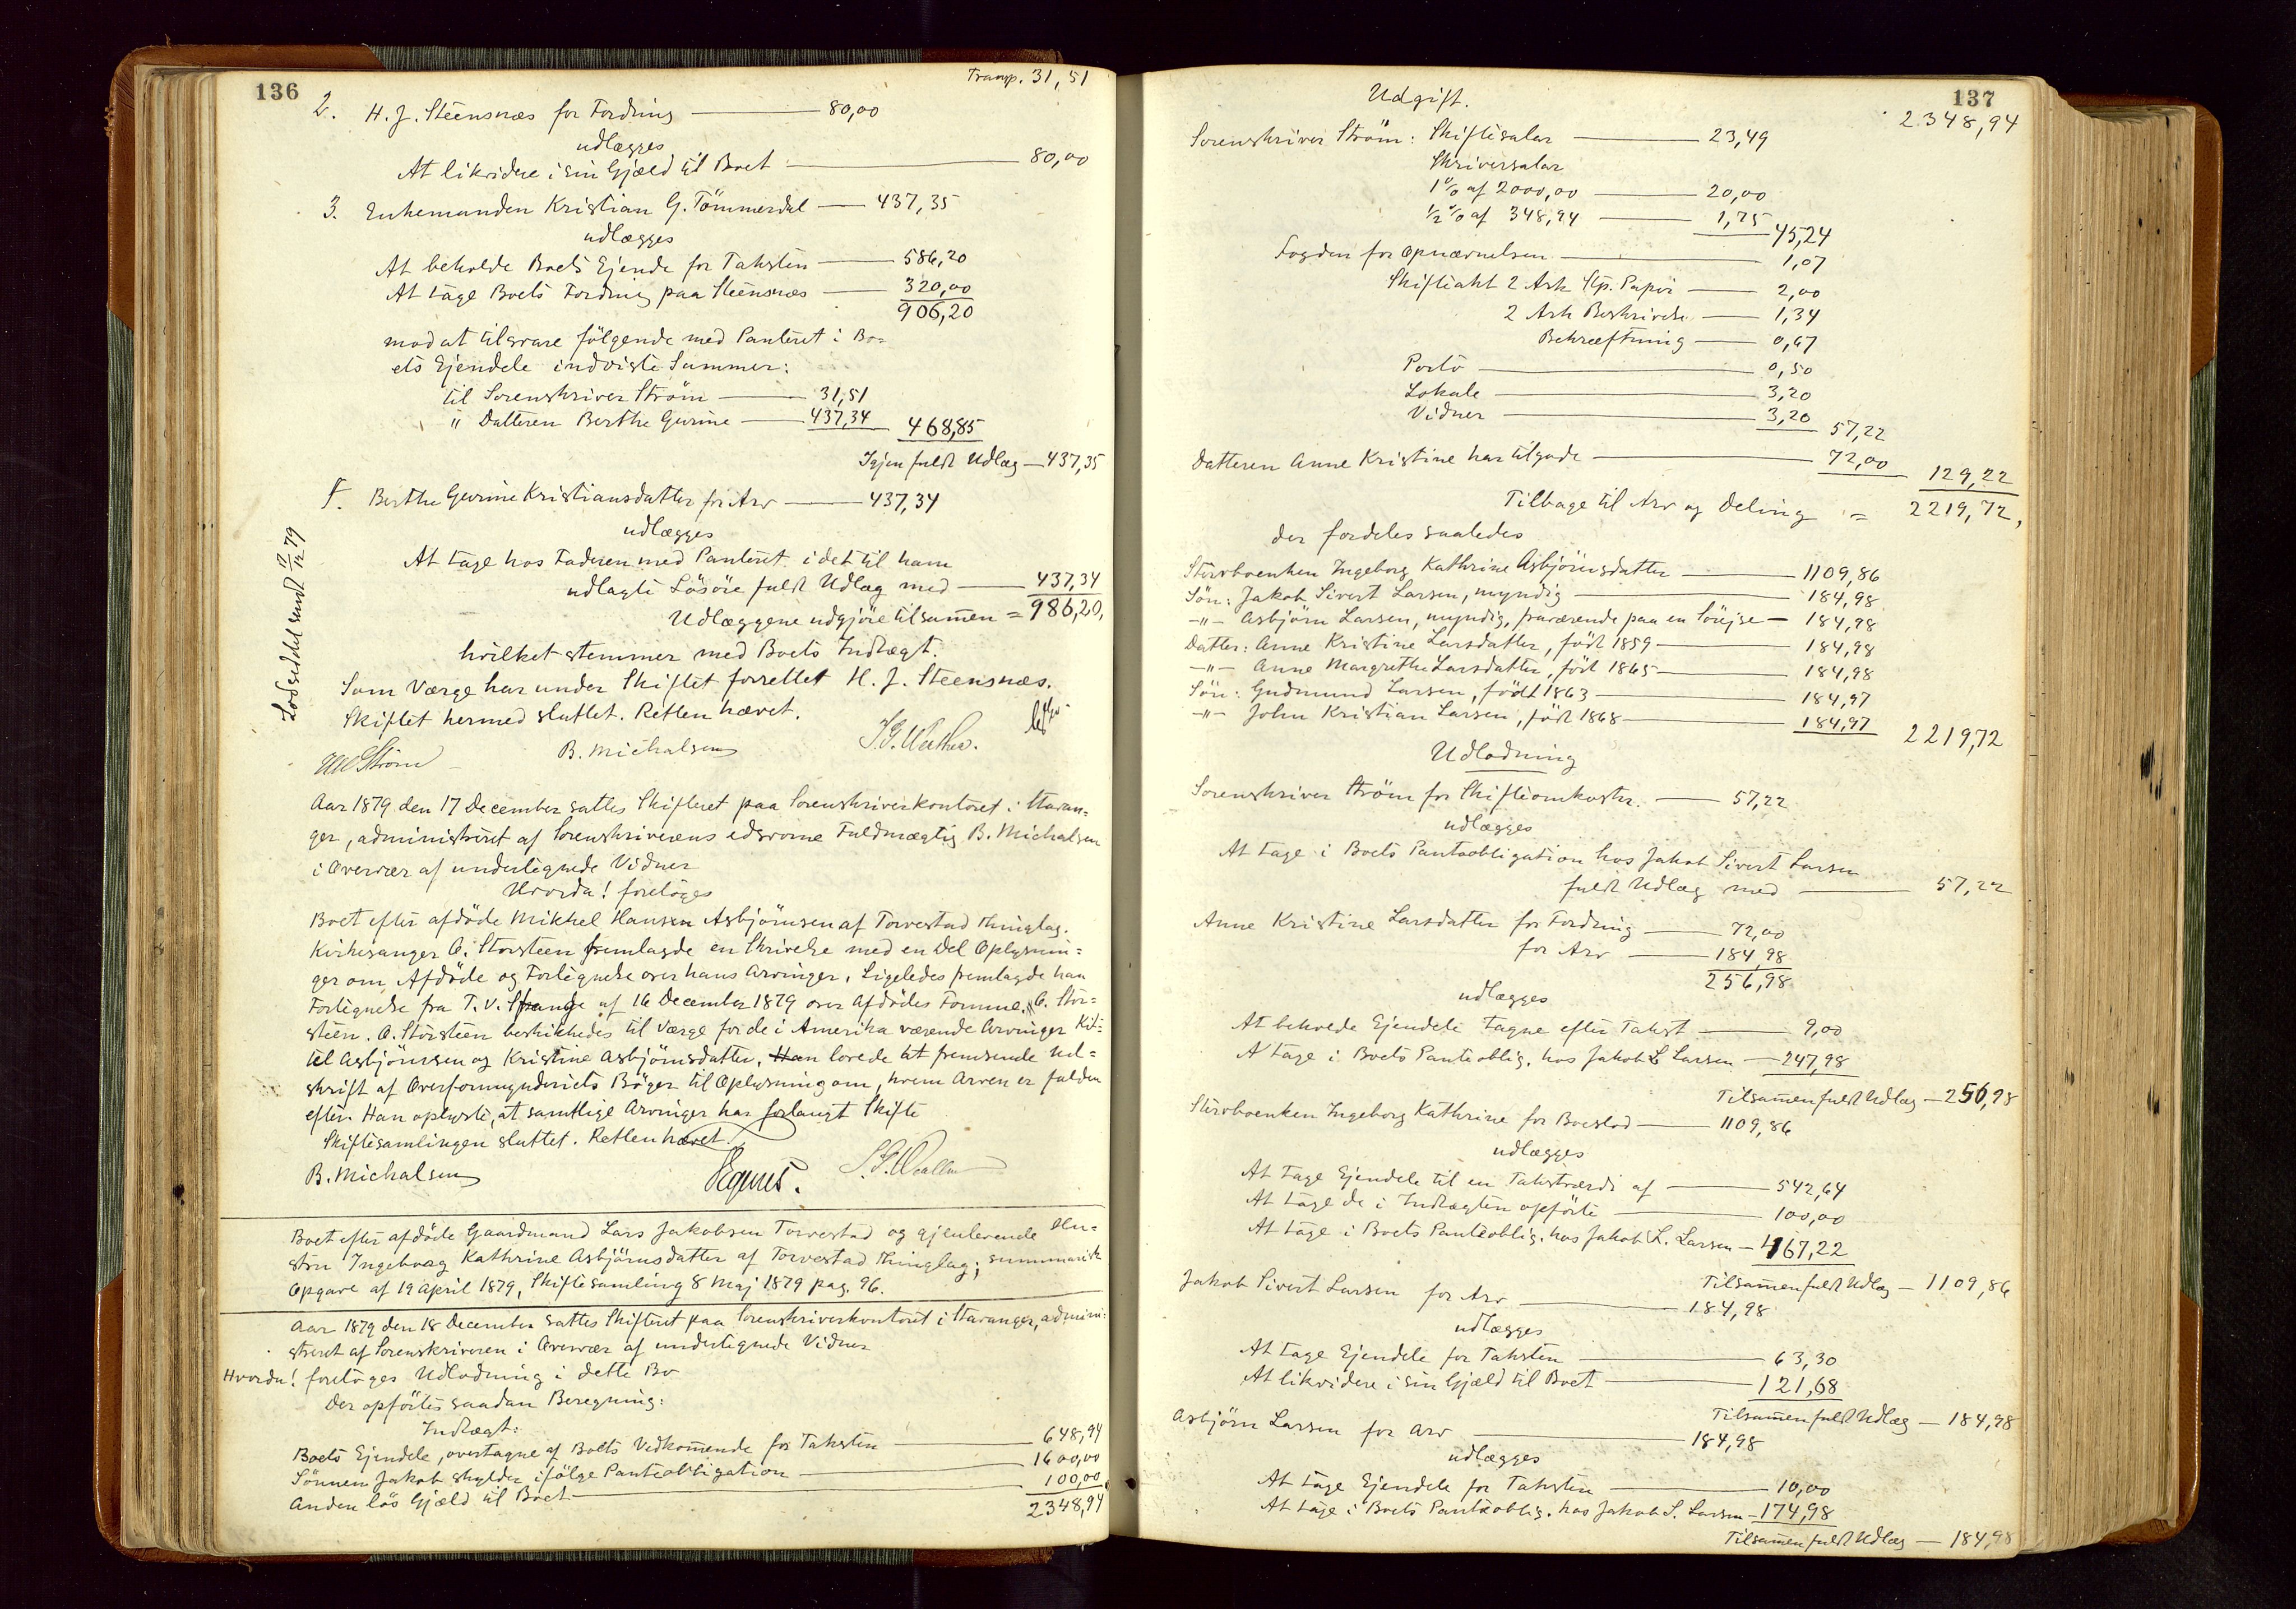 136
Transp. 31,51
2. H. J. Steensnæs for Fordring — 80,00
udlægges
At likvidere i sin Gjæld til Boet — 80,00
3. Enkemanden Kristian G. Tömmerdal — 437,35
udlægges
At beholde Boets Ejende for Taksten — 586,20
At tage Boets Fordring paa Steensnæs — 320,00
906,20
mod at tilsvare fölgende med Panteret i Bo-
ets Ejendele indviste Summer:
til Sorenskriver Ström — 31,51
" Datteren Berthe Gurine — 437,34 468,85
Igjen fuldt Udlæg — 437,35
4. Berthe Gurine Kristiansdatter for Arv — 437,34
udlægges
At tage hos Faderen med Panteret i det til ham
udlagte Lösöre fuldt Udlæg med — 437,34
Udlæggene udgjöre tilsammen = 986,20,
hvilket stemmer med Boets Indtægt.
Som Værge har under Skiftet forrettet H. J. Steensnæs.
Skiftet hermed sluttet. Retten hævet.
Lodseddel sendt 17/12 79
Ström B. Michalsen
Aar 1879 den 17 December sattes Skifteret paa Sorenskriverkontoret i Stavan-
ger, administreret af Sorenskriverens edsvorne Fuldmægtig B. Michalsen
i Overvær af undertegnede Vidner
Hvorda! foretoges
Boet efter afdöde Mikkel Hansen Asbjörnsen af Torvestad Thinglag.
Kirkesanger O. Storsteen fremlagde en Skrivelse med en Del Oplysnin-
ger om Afdöde og Fortegnelse over hans Arvinger. Ligeledes fremlagde han
Fortegnelse fra T. V. Stange af 16 December 1879 over Afdödes Formue. O. Stor-
steen. O. Storsteen beskikkedes til Værge for de i Amerika værende Arvinger Kit-
til Asbjörnsen og Kristine Asbjörnsdatter. Han lovede at fremsende Ud-
skrift af Overformynderiets Böger til Oplysning om, hvem Arven er falden
efter. Han oplyste, at samtlige Arvinger har forlangt Skifte
Skiftesamlingen sluttet. Retten hævet.
B. Michalsen
Boet efter afdöde Gaardmand Lars Jakobsen Torvestad og gjenlevende Hu-
stru Ingeborg Kathrine Asbjörnsdatter af Torvestad Thinglag; summarisk
Opgave af 19 April 1879, Skiftesamling 8 Maj 1879 pag. 96.
Aar 1879 den 18 December sattes Skifteret paa Sorenskriverkontoret i Stavanger, admini-
streret af Sorenskriveren i Overvær af undertegnede Vidner
Hvorda! foretoges Udlodning i dette Bo
Der opförtes saadan Beregning:
Indtægt:
Boets Ejendele, overtagne af Boets Vedkommende for Taksten — 648,94
Sönnen Jakob skylder ifölge Panteobligation — 1600,00
Anden lös Gjæld til Boet — 100,00
2348,94
137
Udgift. 2348,94
Sorenskriver Ström: Skiftesalær — 23,49
Skriversalær
1% af 2000,00 — 20,00
½% af 348,94 — 1,75 45,24
Fogden for Opnævnelsen — 1,07
Skifteakt 2 Ark Stp. Papir — 2,00
2 Ark Beskrivelse — 1,34
Bekræftning — 0,67
Porto — 0,50
Lokale — 3,20
Vidner — 3,20 57,22
Datteren Anne Kristine har tilgode — 72,00 129,22
Tilbage til Arv og Deling = 2219,72,
der fordeles saaledes
Stervboenken Ingeborg Kathrine Asbjörnsdatter — 1109,86
Sön: Jakob Sivert Larsen, myndig — 184,98
-"- Asbjörn Larsen, myndig, fraværende paa en Sörejse — 184,98
Datter: Anne Kristine Larsdatter, född 1859 — 184,98
-"- Anne Margrethe Larsdatter, född 1865 — 184,98
Sön: Gudmund Larsen, födt 1863 — 184,97
-"- John Kristian Larsen, född 1868 — 184,97 2219,72
Udlodning
Sorenskriver Ström for Skifteomkostn. — 57,22
udlægges
At tage i Boets Panteobligation hos Jakob Sivert Larsen
fuldt Udlæg med — 57,22
Anne Kristine Larsdatter for Fordring — 72,00
for Arv — 184,98
256,98
udlægges
At beholde Ejendele tagne efter Takst — 9,00
At tage i Boets Panteoblig. hos Jakob L Larsen — 247,98
Tilsammen fuldt Udlæg — 256,98
Stervboenken Ingeborg Kathrine for Boeslod — 1109,86
udlægges
At tage Ejendele til en Takstværdi af — 542,64
At tage de i Indtægten opförte — 100,00
At tage i Boets Panteoblig. hos Jakob L. Larsen — 467,22
Tilsammen fuldt Udlæg — 1109,86
Jakob Sivert Larsen for Arv — 184,98
udlægges
At tage Ejendele for Taksten — 63,30
At likvidere i sin Gjæld til Boet — 121,68
Tilsammen fuldt Udlæg — 184,98
Asbjörn Larsen for Arv — 184,98
udlægges
At tage Ejendele for Taksten — 10,00
At tage i Boets Panteoblig. hos Jakob S. Larsen — 174,98
Tilsammen fuldt Udlæg — 184,98